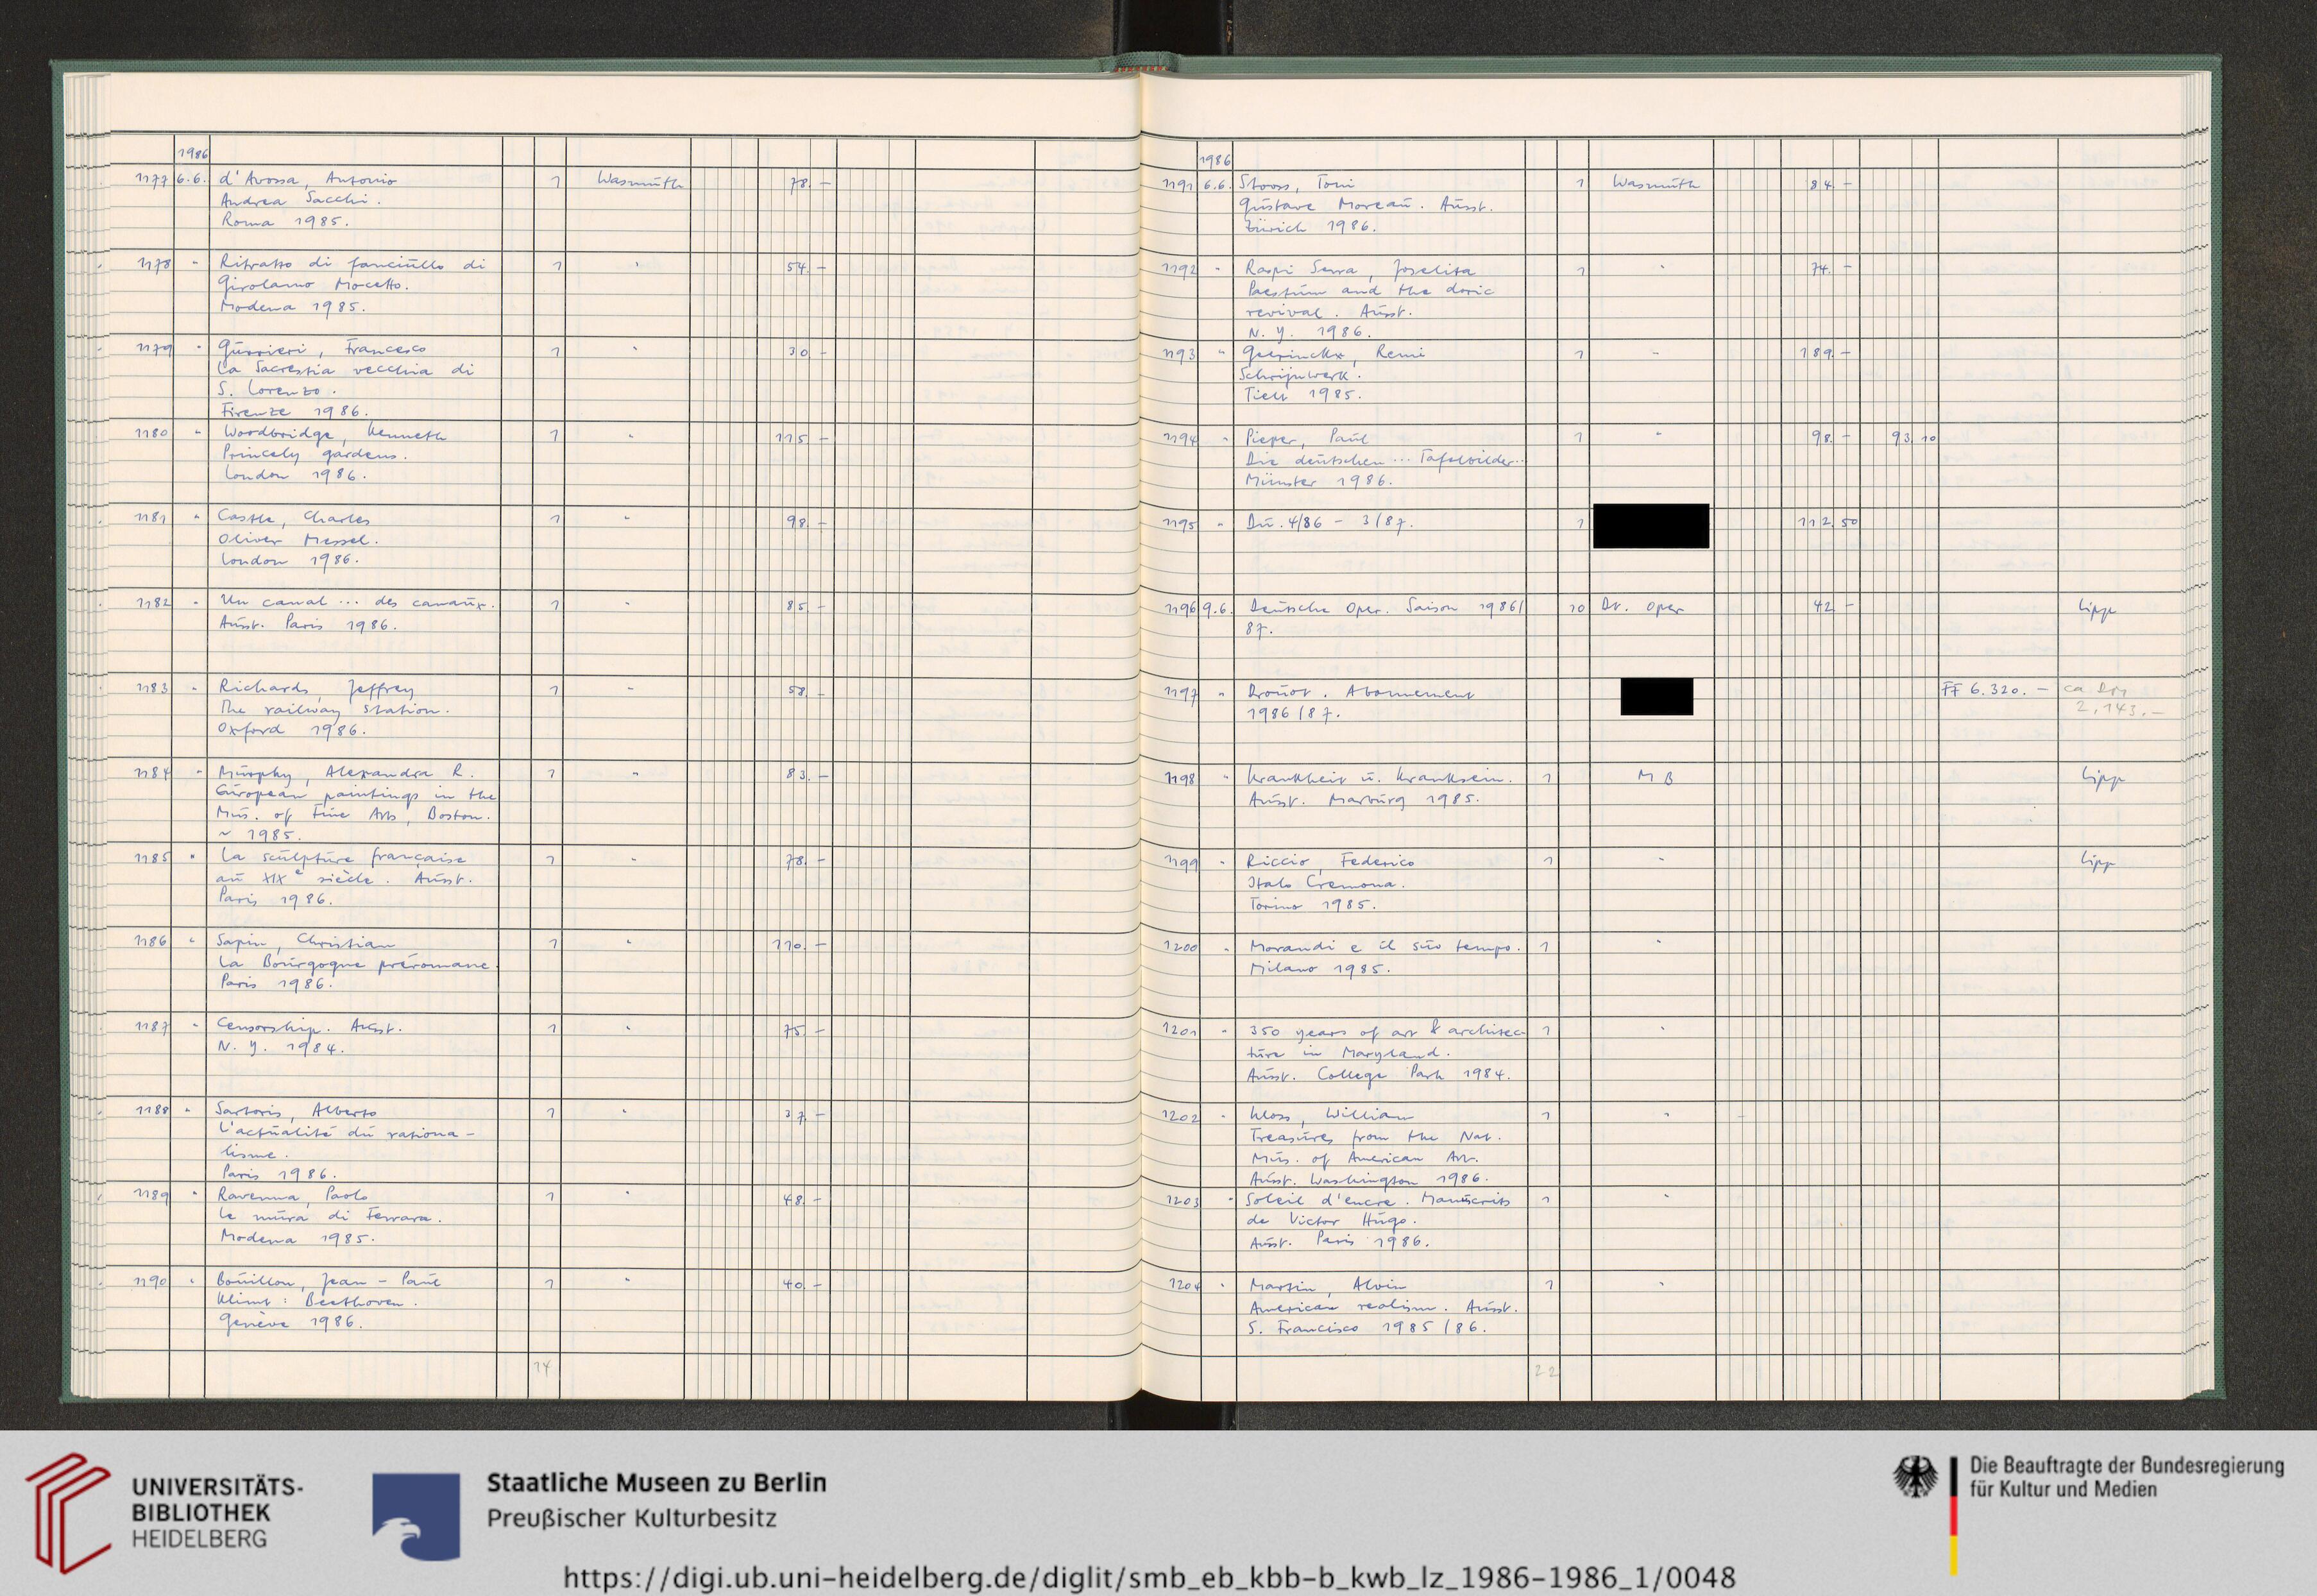 1986
1177 6.6. d'Avossa, Antonio 1 Wasmuth 78. -
Andrea Sacchi.
Roma 1985.
1178 " Ritratto di fanciullo di 1 " 54. -
Girolamo Mocetto.
Modena 1985.
1179 " Gurrieri, Francesco 1 " 30 -
La Sacrestia vecchia di
S. Lorenzo.
Firenze 1986.
1180 " Woodbridge, Kenneth 1 " 115 -
Princely gardens.
London 1986.
1181 " Castle, Charles 1 " 98. -
Oliver Messel.
London 1986.
1182 " Un canal ... des canaux. 1 " 85. -
Ausst. Paris 1986.
1183 " Richards, Jeffrey 1 " 58. -
The railway station.
Oxford 1986.
1184 " Murphy, Alexandra R. 1 " 83. -
European paintings in the
Mus. of Fine Arts, Boston.
~ 1985.
1185 " La sculpture française 1 " 78. -
au XIXe siècle. Ausst.
Paris 1986.
1186 " Sapin, Christian 1 " 110. -
La Bourgogne préromane.
Paris 1986.
1187 " Censorship. Ausst. 1 " 75. -
N. Y. 1984.
1188 " Sartoris, Alberto 1 " 37. -
L'actualité du rationa-
lisme.
Paris 1986.
1189 " Ravenna, Paolo 1 " 48. -
Le mura di Ferrara.
Modena 1985.
1190 " Bouillon, Jean-Paul 1 " 40. -
Klimt: Beethoven.
Genève 1986.
14
1986
1191 6.6. Stooss, Toni 1 Wasmuth 84. -
Gustave Moreau. Ausst.
Zürich 1986.
1192 " Raspi Serra, Joselita 1 " 74. -
Paestum and the doric
revival. Ausst.
N. Y. 1986.
1193 " Geerinckx, Remi 1 " 189. -
Schrijnwerk.
Tielt 1985.
1194 " Pieper, Paul 1 " 98. - 93.10
Die deutschen ... Tafelbilder..
Münster 1986.
1195 " Du. 4/86 - 3/87. 1 112.50
1196 9.6. Deutsche Oper. Saison 1986/ 10 Dt. Oper 42 - Lipp
87.
1197 " Drouot. Abonnement FF 6.320. - ca DM
1986/87. 2.143. -
1198 " Krankheit u. Kranksein. 1 MB Lipp
Ausst. Marburg 1985.
1199 " Riccio, Federico 1 " Lipp
Italo Cremona.
Torino 1985.
1200 " Morandi e il suo tempo. 1 "
Milano 1985.
1201 " 350 years of art & architec- 1 "
ture in Maryland.
Ausst. College Park 1984.
1202 " Kloss, William 1 "
Treasures from the Nat.
Mus. of American Art.
Ausst. Washington 1986.
1203 " Soleil d'encre. Manuscrits 1 "
de Victor Hugo.
Ausst. Paris 1986.
1204 " Martin, Alvin 1 "
American realism. Ausst.
S. Francisco 1985/86.
22
UNIVERSITÄTS-
BIBLIOTHEK
HEIDELBERG
Staatliche Museen zu Berlin
Preußischer Kulturbesitz
Die Beauftragte der Bundesregierung
für Kultur und Medien
https://digi.ub.uni-heidelberg.de/diglit/smb_eb_kbb-b_kwb_lz_1986-1986_1/0048